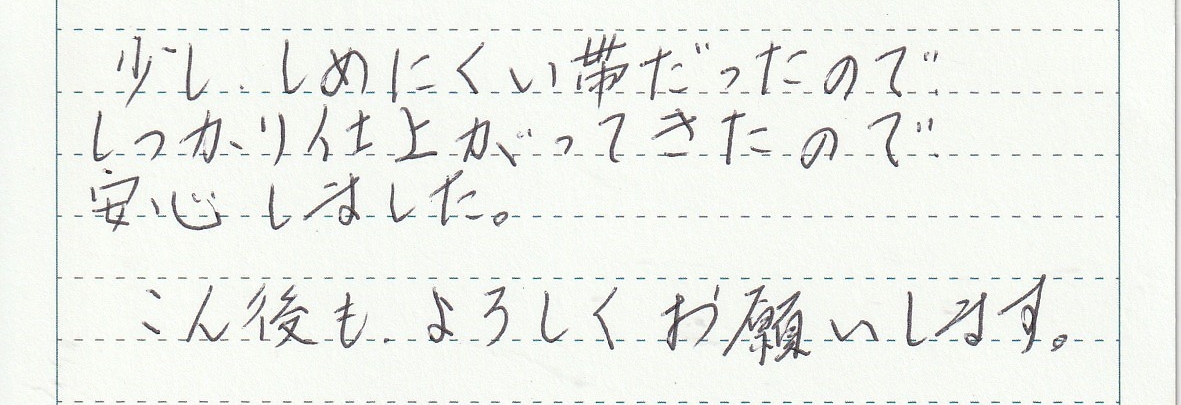 少し、しめにくい帯だったので
しっかり仕上がってきたので
安心しました。
こん後も、よろしくお願いします。